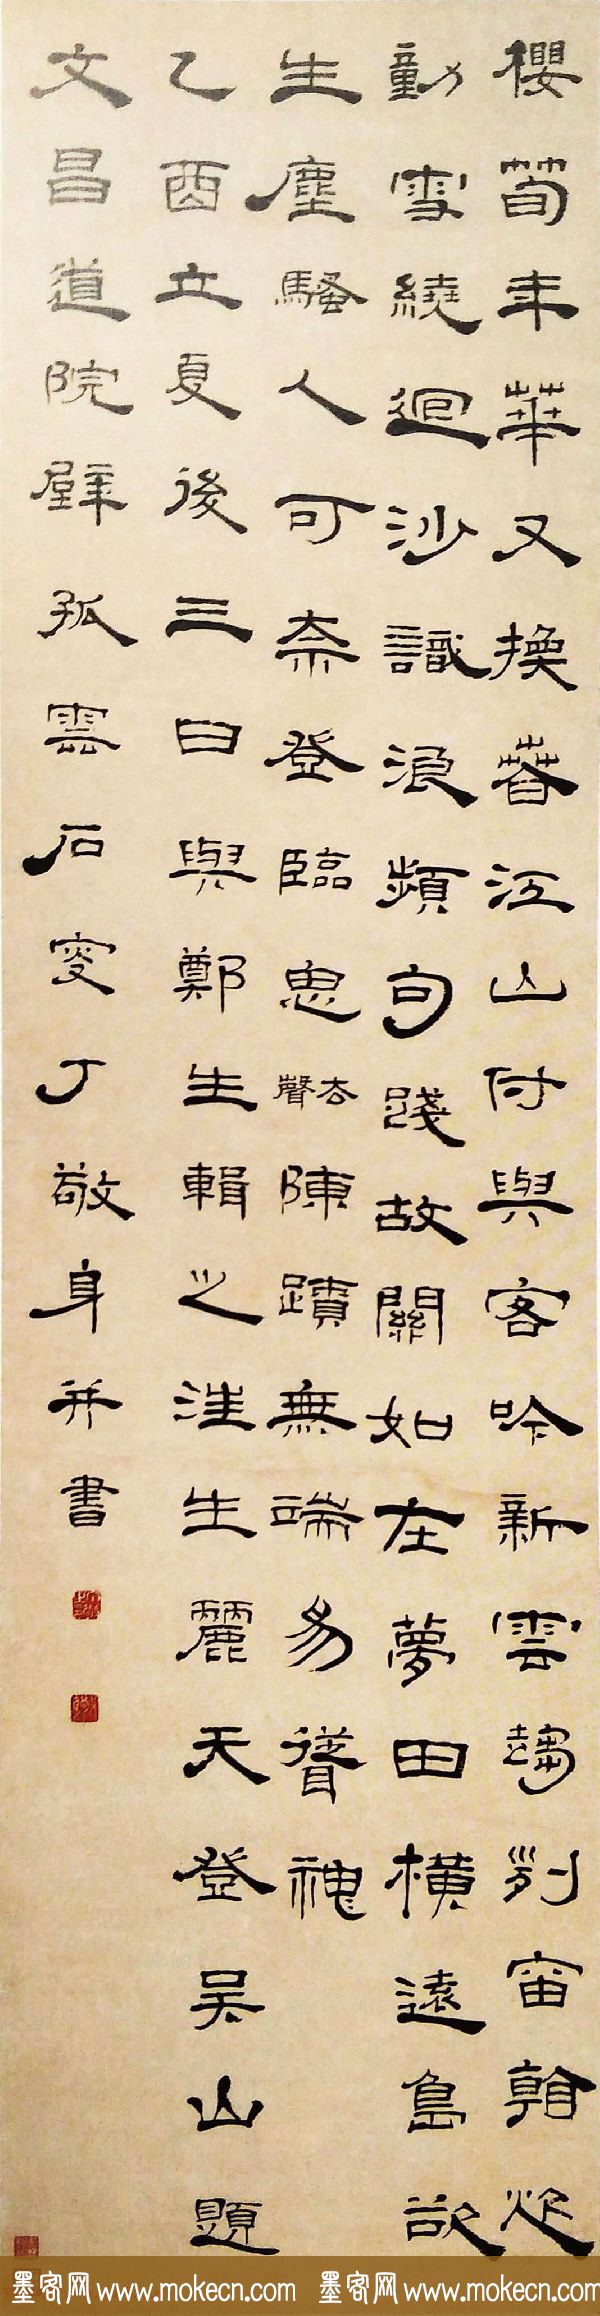 櫻筍年華又換春江山付與客吟新雲趨列宙
動雪繞迴沙識浪頻句踐故關如在夢田橫遠島欲
生塵騷人可奈登臨思去聲陳蹟無端易
乙酉立夏後三日與鄭生輯之汪生麗天登吳山題
文昌道院壁孤雲石叟丁敬身并書
墨客网 www.mokecn.com 墨客网 www.mokecn.com